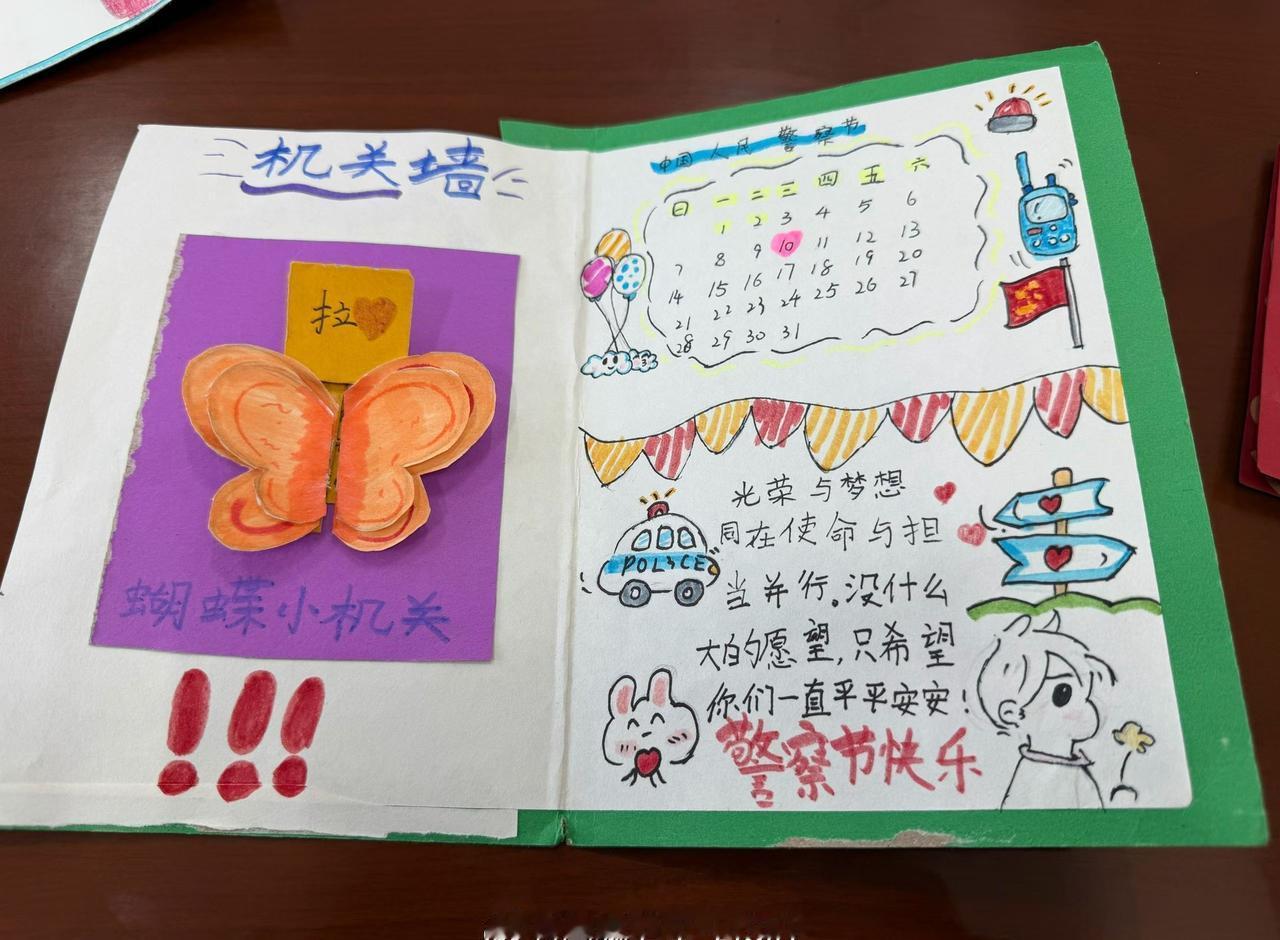 机关墙
拉
蝴蝶小机关
!!!
中国人民警察节
日 一 二 三 四 五 六
1 2 3 4 5 6
7 8 9 10 11 12 13
14 15 16 17 18 19 20
21 22 23 24 25 26 27
28 29 30 31
POLICE
光荣与梦想
同在使命与担
当并行。没什么
大的愿望,只希望
你们一直平平安安!
警察节快乐